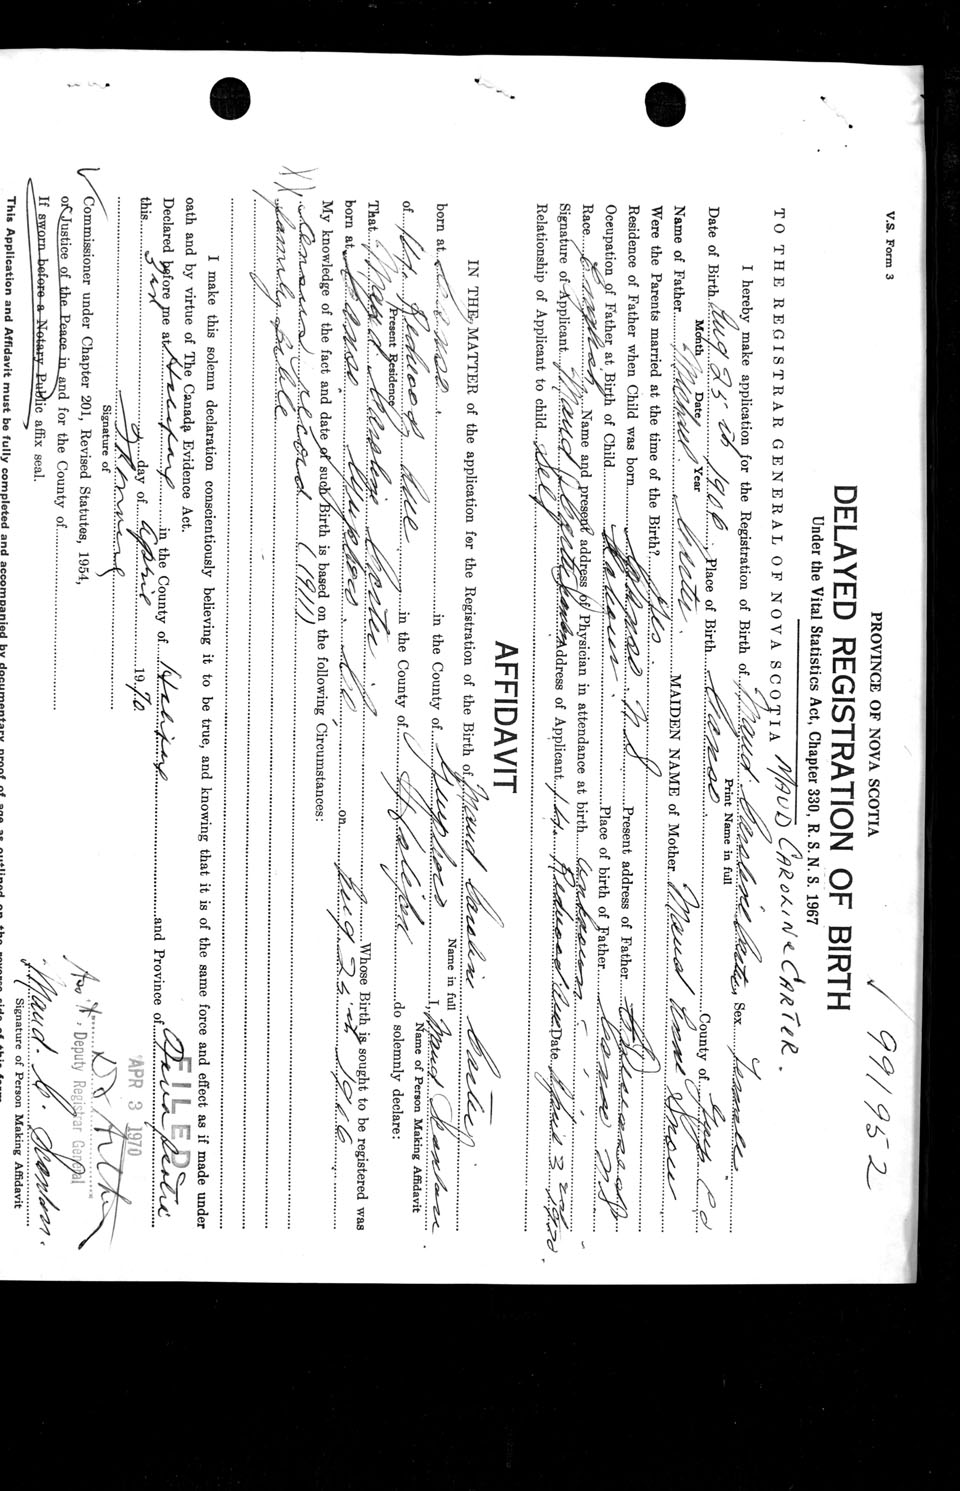 V.S. Form 3
PROVINCE OF NOVA SCOTIA
√ 991952
DELAYED REGISTRATION OF BIRTH
Under the Vital Statistics Act, Chapter 330, R. S. N. S. 1967
TO THE REGISTRAR GENERAL OF NOVA SCOTIA MAUD CAROLINE CARTER.
Print Name in full
I hereby make application for the Registration of Birth of Maud Caroline Carter Sex Female
Date of Birth Aug 25th 1906, Place of Birth Canso County of Guys Co
Month Date Year
Name of Father Carter. MAIDEN NAME of Mother Maud Snow
Were the Parents married at the time of the Birth? Yes.
Residence of Father when Child was born Canso N S Present address of Father
Occupation of Father at Birth of Child Place of birth of Father Canso N S
Race Name and present address of Physician in attendance at birth unknown
Signature of Applicant Maud Address of Applicant Redwood Ave Date April 3rd 1970.
Relationship of Applicant to child Self
AFFIDAVIT
IN THE MATTER of the application for the Registration of the Birth of Maud Carolin Carter.
Name in full
born at Canso in the County of Guysboro I, Maud Scanlan
Name of Person Making Affidavit
of Redwood Ave in the County of Halifax do solemnly declare:
Present Residence
That Maud Carolin Carter Whose Birth is sought to be registered was
born at Canso Guysboro Co on Aug 25th 1906
My knowledge of the fact and date of such Birth is based on the following Circumstances:
XX Census record (1911)
Family Bible
I make this solemn declaration conscientiously believing it to be true, and knowing that it is of the same force and effect as if made under
oath and by virtue of The Canada Evidence Act.
Declared before me at Halifax in the County of Halifax and Province of Nova Scotia
this 3rd day of April 1970
FILED
APR 3 1970
Signature of
Deputy Registrar General
√ Commissioner under Chapter 201, Revised Statutes, 1954,
or Justice of the Peace in and for the County of
If sworn before a Notary Public affix seal.
Maud. C. Scanlan.
(Signature of Person Making Affidavit
This Application and Affidavit must be fully completed and accompanied by documentary proof of age as outlined on the reverse side of this form